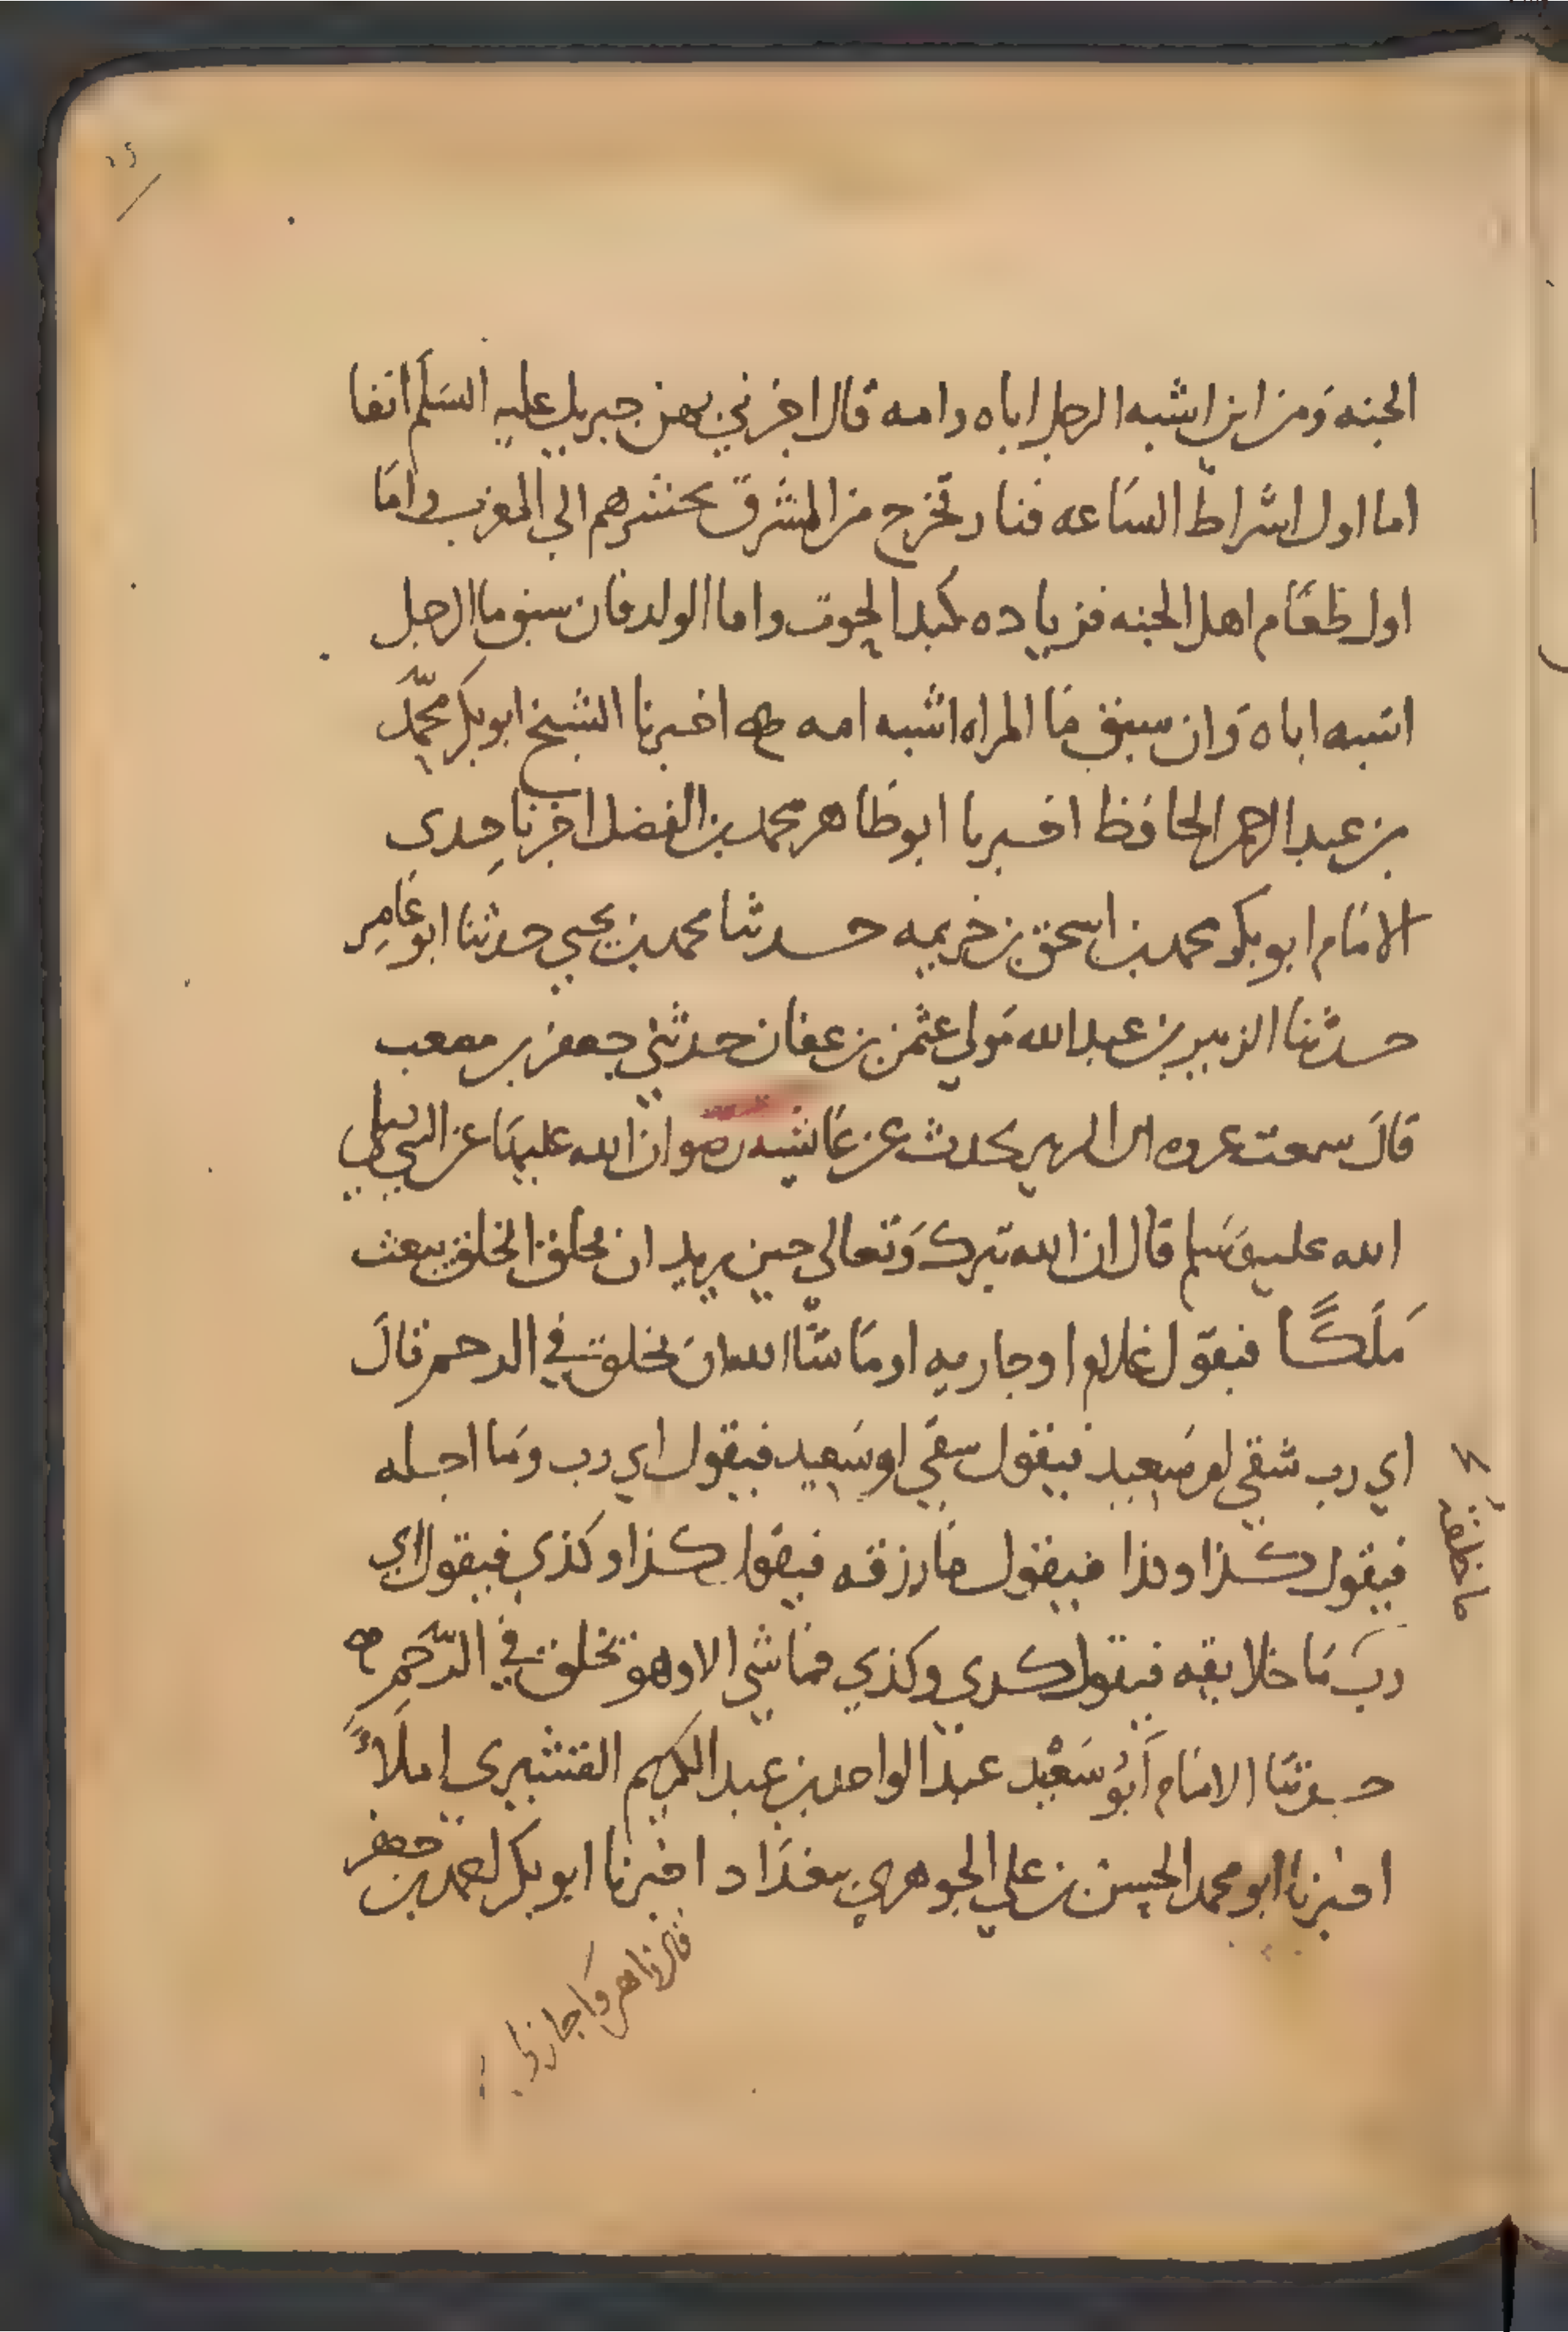 الجنه ومن اين اشبه الرجل اباه وامه قال اخبرني بهن جبريل عليه السلم انفا
اما اول اشراط الساعه فنار تخرج من المشرق تحشرهم الى المغرب واما
اول طعام اهل الجنه فزياده كبد الحوت واما الولد فان سبق ما الرجل
اشبه اباه وان سبق ما المراه اشبه امه اخبرنا الشيخ ابو بكر محمد
بن عبد الرحمن الحافظ اخبرنا ابو طاهر محمد بن الفضل اخبرنا جدى
الامام ابو بكر محمد بن اسحق بن خزيمه حدثنا محمد بن يحيى حدثنا ابو عامر
حدثنا الزبير بن عبد الله مولى عثمن بن عفان حدثني جعفر بن مصعب
قال سمعت عروه ابن الزبير يحدث عن عائشه رضوان الله عليها عن النبي صلى
الله عليه وسلم قال ان الله تبرك وتعالى حين يريد ان يخلق الخلق يبعث
ملكا فيقول غلام او جاريه او ما شا الله ان يخلق في الرحم قال
اي رب شقي ام سعيد فيقول شقي او سعيد فيقول اي رب وما اجله
فيقول كذا وكذا فيقول ما رزقه فيقول كذا وكذي فيقول اي
رب ما خلايقه فيقول كذي وكذي فما شي الا وهو يخلق في الرحم
حدثنا الامام ابو سعيد عبد الواحد بن عبد الكريم القشيري املاء
اخبرنا ابو محمد الحسن بن علي الجوهري ببغداد اخبرنا ابو بكر احمد بن جعفر
ما خلقه